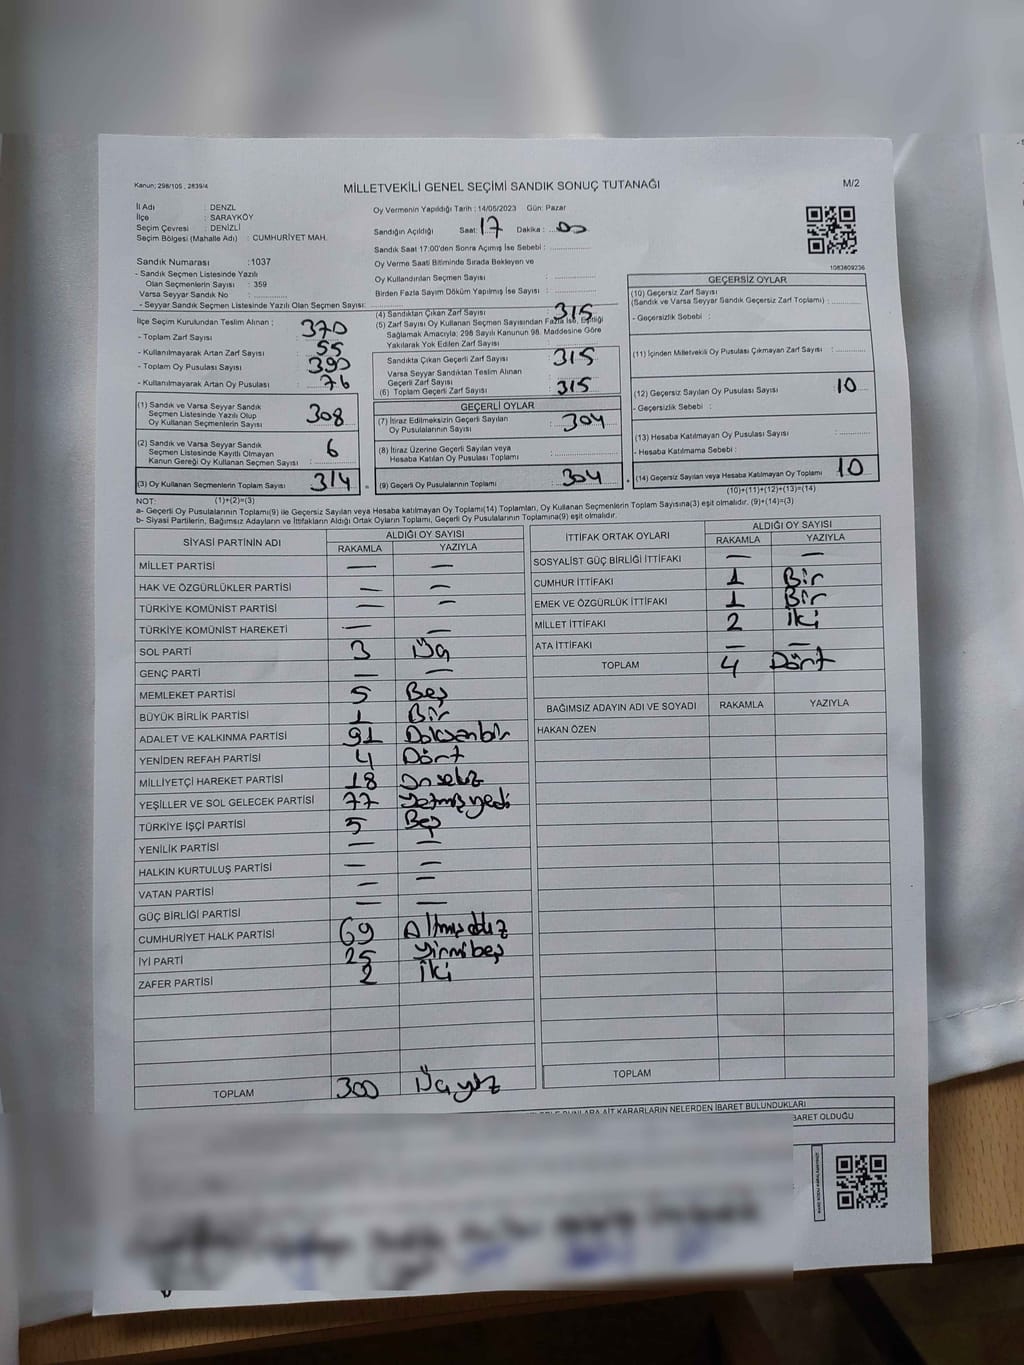 Kanun; 298/105 , 2839/4
MİLLETVEKİLİ GENEL SEÇİMİ SANDIK SONUÇ TUTANAĞI
M/2
İl Adı : DENZL
İlçe : SARAYKÖY
Seçim Çevresi : DENİZLİ
Seçim Bölgesi (Mahalle Adı) : CUMHURİYET MAH.
Sandık Numarası :1037
- Sandık Seçmen Listesinde Yazılı
Olan Seçmenlerin Sayısı : 359
Varsa Seyyar Sandık No :
- Seyyar Sandık Seçmen Listesinde Yazılı Olan Seçmen Sayısı:
Oy Vermenin Yapıldığı Tarih : 14/05/2023 Gün: Pazar
Sandığın Açıldığı Saat: 17 Dakika : 00
Sandık Saat 17:00'den Sonra Açılmış İse Sebebi :
Oy Verme Saati Bitiminde Sırada Bekleyen ve
Oy Kullandırılan Seçmen Sayısı :
Birden Fazla Sayım Döküm Yapılmış İse Sayısı :
1083809236
İlçe Seçim Kurulundan Teslim Alınan :
- Toplam Zarf Sayısı 370
- Kullanılmayarak Artan Zarf Sayısı : 55
- Toplam Oy Pusulası Sayısı : 390
- Kullanılmayarak Artan Oy Pusulası : 76
(1) Sandık ve Varsa Seyyar Sandık
Seçmen Listesinde Yazılı Olup
Oy Kullanan Seçmenlerin Sayısı 308
(2) Sandık ve Varsa Seyyar Sandık
Seçmen Listesinde Kayıtlı Olmayan
Kanun Gereği Oy Kullanan Seçmen Sayısı : 6
(3) Oy Kullanan Seçmenlerin Toplam Sayısı : 314
(1)+(2)=(3)
(4) Sandıktan Çıkan Zarf Sayısı : 315
(5) Zarf Sayısı Oy Kullanan Seçmen Sayısından Fazla İse, Eşitliği
Sağlamak Amacıyla; 298 Sayılı Kanunun 98. Maddesine Göre
Yakılarak Yok Edilen Zarf Sayısı :
Sandıkta Çıkan Geçerli Zarf Sayısı : 315
Varsa Seyyar Sandıktan Teslim Alınan
Geçerli Zarf Sayısı :
(6) Toplam Geçerli Zarf Sayısı : 315
GEÇERLİ OYLAR
(7) İtiraz Edilmeksizin Geçerli Sayılan
Oy Pusulalarının Sayısı : 304
(8) İtiraz Üzerine Geçerli Sayılan veya
Hesaba Katılan Oy Pusulası Toplamı :
(9) Geçerli Oy Pusulalarının Toplamı : 304
GEÇERSİZ OYLAR
(10) Geçersiz Zarf Sayısı
(Sandık ve Varsa Seyyar Sandık Geçersiz Zarf Toplamı) :
- Geçersizlik Sebebi :
(11) İçinden Milletvekili Oy Pusulası Çıkmayan Zarf Sayısı :
(12) Geçersiz Sayılan Oy Pusulası Sayısı : 10
- Geçersizlik Sebebi :
(13) Hesaba Katılmayan Oy Pusulası Sayısı :
- Hesaba Katılmama Sebebi :
(14) Geçersiz Sayılan veya Hesaba Katılmayan Oy Toplamı : 10
(10)+(11)+(12)+(13)=(14)
NOT:
a- Geçerli Oy Pusulalarının Toplamı(9) ile Geçersiz Sayılan veya Hesaba katılmayan Oy Toplamı(14) Toplamları, Oy Kullanan Seçmenlerin Toplam Sayısına(3) eşit olmalıdır. (9)+(14)=(3)
b- Siyasi Partilerin, Bağımsız Adayların ve İttifakların Aldığı Ortak Oyların Toplamı, Geçerli Oy Pusulalarının Toplamına(9) eşit olmalıdır.
SİYASİ PARTİNİN ADI ALDIĞI OY SAYISI
RAKAMLA YAZIYLA
MİLLET PARTİSİ — —
HAK VE ÖZGÜRLÜKLER PARTİSİ — —
TÜRKİYE KOMÜNİST PARTİSİ — —
TÜRKİYE KOMÜNİST HAREKETİ — —
SOL PARTİ 3 Üç
GENÇ PARTİ — —
MEMLEKET PARTİSİ 5 Beş
BÜYÜK BİRLİK PARTİSİ 1 Bir
ADALET VE KALKINMA PARTİSİ 91 Doksanbir
YENİDEN REFAH PARTİSİ 4 Dört
MİLLİYETÇİ HAREKET PARTİSİ 18 Onsekiz
YEŞİLLER VE SOL GELECEK PARTİSİ 77 Yetmişyedi
TÜRKİYE İŞÇİ PARTİSİ 5 Beş
YENİLİK PARTİSİ — —
HALKIN KURTULUŞ PARTİSİ — —
VATAN PARTİSİ — —
GÜÇ BİRLİĞİ PARTİSİ — —
CUMHURİYET HALK PARTİSİ 69 Altmışdokuz
İYİ PARTİ 25 Yirmibeş
ZAFER PARTİSİ 2 İki
TOPLAM 300 Üçyüz
İTTİFAK ORTAK OYLARI ALDIĞI OY SAYISI
RAKAMLA YAZIYLA
SOSYALİST GÜÇ BİRLİĞİ İTTİFAKI — —
CUMHUR İTTİFAKI 1 Bir
EMEK VE ÖZGÜRLÜK İTTİFAKI 1 Bir
MİLLET İTTİFAKI 2 İki
ATA İTTİFAKI — —
TOPLAM 4 Dört
BAĞIMSIZ ADAYIN ADI VE SOYADI RAKAMLA YAZIYLA
HAKAN ÖZEN
TOPLAM
BUNLARA AİT KARARLARIN NELERDEN İBARET BULUNDUKLARI
BARET OLDUĞU